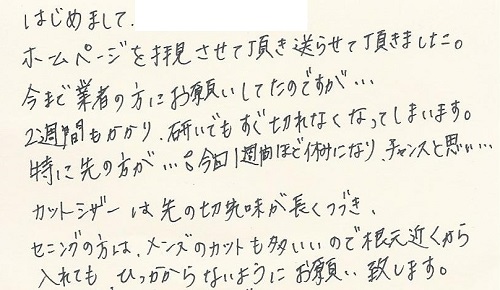 はじめまして.
ホームページを拝見させて頂き送らせて頂きました。
今まで業者の方にお願いしてたのですが…
2週間もかかり、研いでもすぐ切れなくなってしまいます。
特に先の方が…。今回1週間ほど休みになり、チャンスと思い…
カットシザーは先の切れ味が長くつづき、
セニングの方は、メンズのカットも多いいので根元近くから
入れても、ひっかからないようにお願い致します。